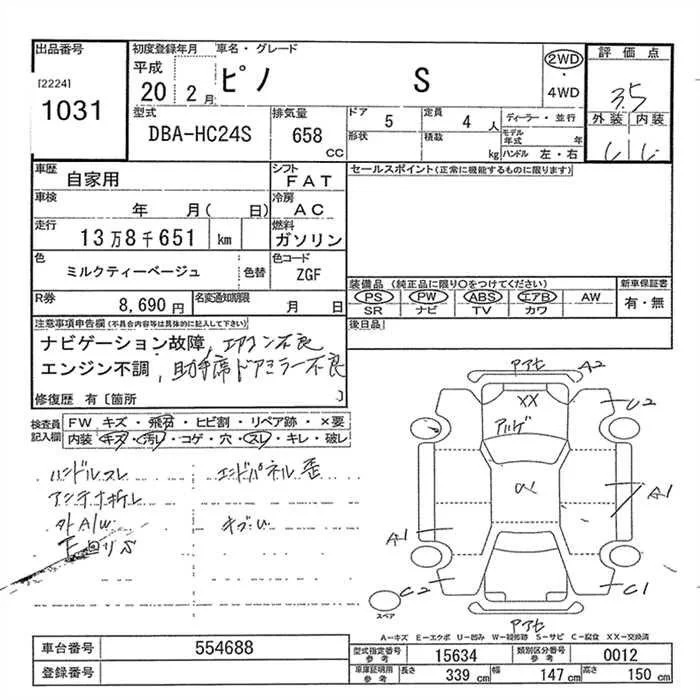 出品番号 初度登録年月 車名・グレード 評価点
[2224] 1031 平成 20 2月 ピノ S 2WD・4WD 3.5
外装 内装
型式 DBA-HC24S 排気量 658 CC ドア 5 定員 4人 ディーラー・並行
形状 積載 kg モデル年式 年 ハンドル 左・右
車歴 自家用 シフト FAT セールスポイント(正常に機能するものに限ります)
車検 年 月( 日) 冷房 AC
走行 13万8千651 km 燃料 ガソリン
色 ミルクティーベージュ 色替 色コード ZGF
装備品 (純正品に限り○をつけてください) 新車保証書
PS PW ABS エアB AW 有・無
SR ナビ TV カワ
R券 8,690円 名変通知期限 月 日 後日品
注意事項申告欄(不具合内容等は具体的に記入して下さい)
ナビゲーション故障, エアコン不良
エンジン不調, 助手席ドアミラー不良
修復歴 有〔箇所 〕
検査員記入欄 FW キズ・飛石・ヒビ割・リペア跡・×要
内装 キズ・汚レ・コゲ・穴・スレ・キレ・破レ
ハンドルスレ エンドパネル歪
アンテナ折レ
外A/W キズU
下回りS
アアセ A2
XX U2
アルゲ
A1
A1
C2 C1
スペア アアセ
A―キズ E―エクボ U―凹み W―補修跡 S―サビ C―腐食 XX―交換済
車台番号 554688 型式指定番号 参考 15634 類別区分番号 参考 0012
登録番号 車庫証明用 参考 長さ 339 cm 幅 147 cm 高さ 150 cm